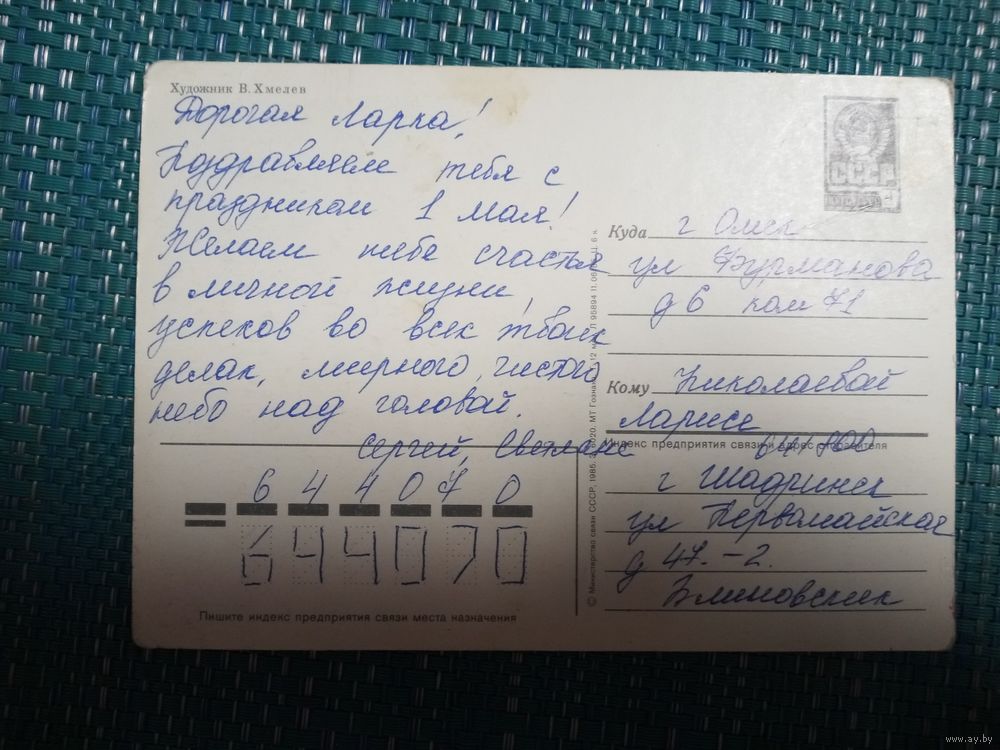 Художник В. Хмелев
Дорогая Ларка!
Поздравляем тебя с
праздником 1 мая!
Желаем тебе счастья
в личной жизни,
успехов во всех твоих
делах, мирного, чистого
небо над головой.
Сергей, Светлана
6 4 4 0 7 0
644070
Пишите индекс предприятия связи места назначения
СССР
Куда г Омск
ул Фурманова
д 6 ком 71
Кому Николаевой
Ларисе
Индекс предприятия связи и адрес отправителя
г Шадринск
ул Первомайская
д 47-2.
Блиновских
© Министерство связи СССР, 1985.
www.ay.by